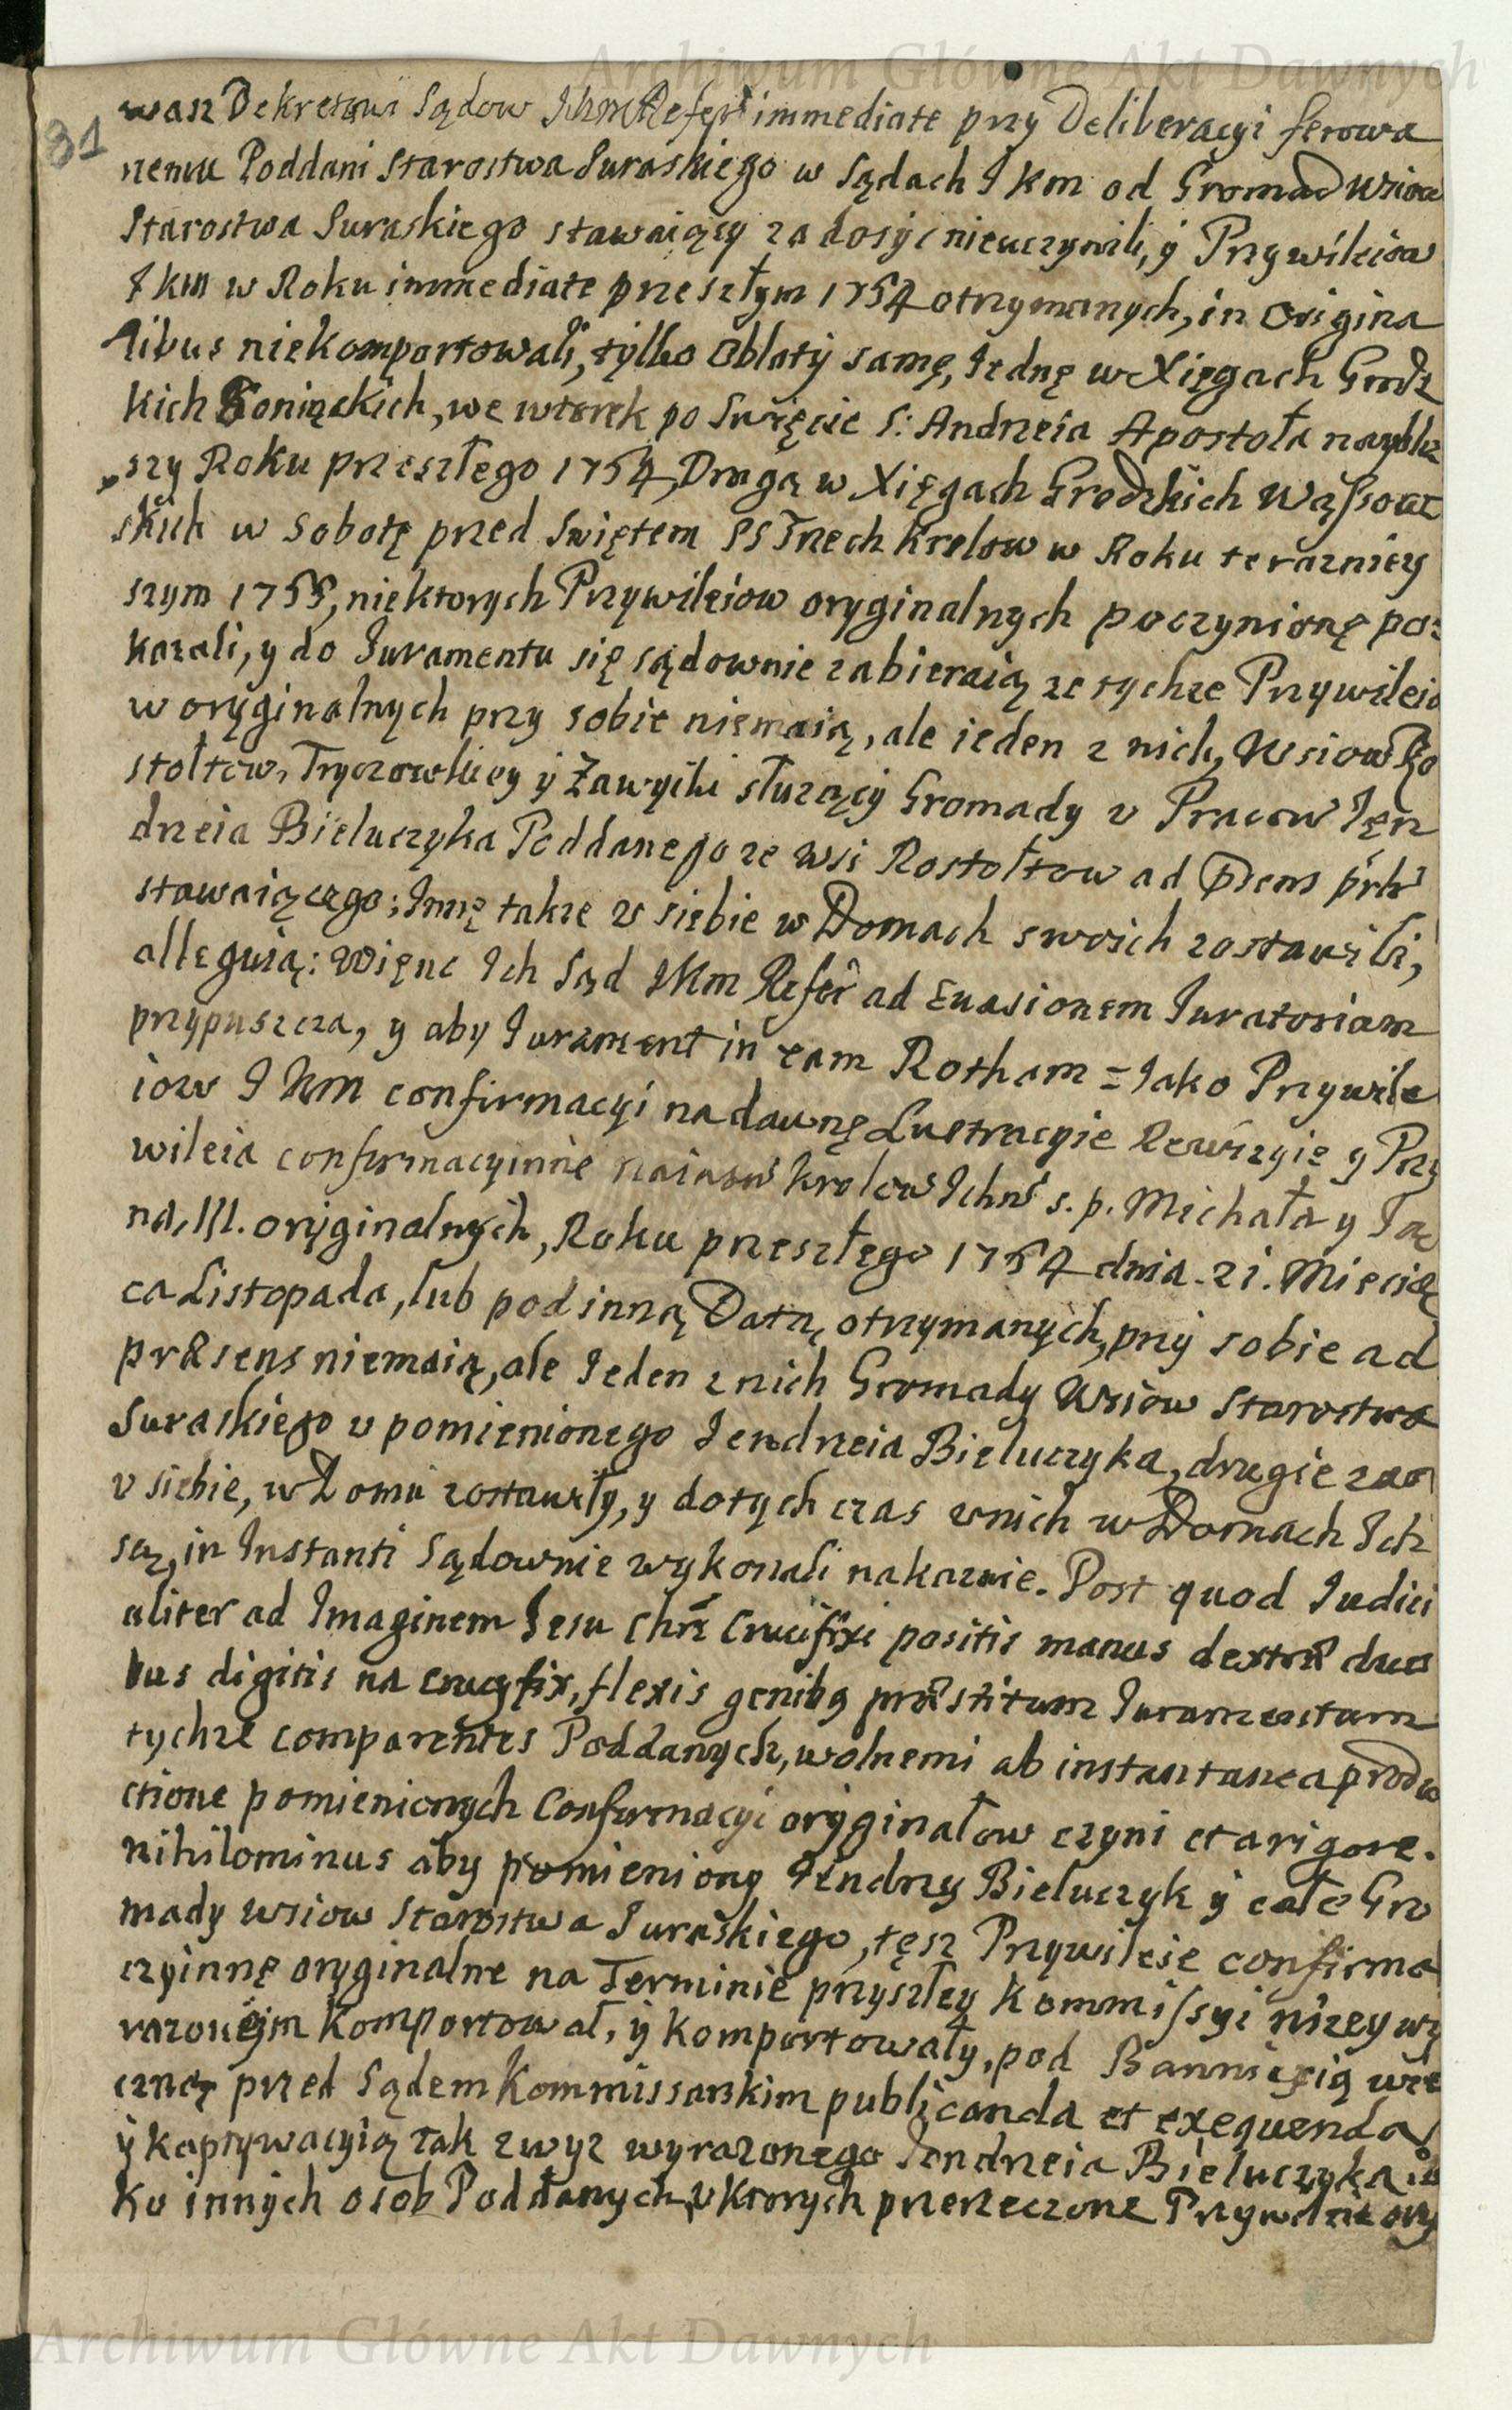 Archiwum Główne Akt Dawnych
31
wasz Dekretowi Sądow JKM Refer immediate przy Deliberacyi ferowa
nemu Poddani Starostwa Suraskiego w Sądach J km od Gromad Wsiow
Starostwa Suraskiego stawaiący za dosyc nieuczynili, y Przywileiow
J km w Roku immediate przeszłym 1754 otrzymanych, in origina
libus niekomportowali, tylko Oblaty samę, Iednę w Xięgach Grodz
kich Goniąckich, we wtorek po Swięcie S: Andrzeia Apostoła nayblis
szy Roku przeszłego 1754, Drugą w Xięgach Grodzkich Wąssow
skich w Sobotę przed Swiętem SS Trzech Krolow w Roku terazniey
szym 1755, niektorych Przywileiow oryginalnych poczynionę po=
kazali, y do Iuramentu się sądownie zabieraią ze tychze Przywileio
w oryginalnych przy sobie niemaią, ale ieden z nich, Wsiow Ro
stołtow, Tryczowkiey y Zawyki służący Gromady v Pracow Ięn
drzeia Bieluczyka Poddanego ze wsi Rostołtow ad Prens prh
stawaiącego; Innę takze v siebie w Domach swoich zostawili,
alleguią: Więnc Ich Sąd JKm Refer ad Euasionem Iuratoriam
przypuszcza, y aby Iurament in eam Rotham = Iako Przywile
iow J Km confirmacyi na dawnę Lustracyie Rewizyie y Prz
wileia confirmacyinne naiasn Krolow Ichm s. p. Michała y Ja
na, III. oryginalnych, Roku przeszłego 1754 dnia. 21. Miesią
ca Listopada, lub pod inną Datą, otrzymanych, przy sobie ad
præsens niemaią, ale Ieden z nich Gromady Wsiow Starostwa
Suraskiego v pomienionego Iendrzeia Bieluczyka, drugie zas
v siebie, w Domu zostawiły, y dotych czas v nich w Domach Ich
są, in Instanti Sądownie wykonali nakazuie. Post quod Iudici
aliter ad Imaginem Iesu Chri Crucifixi positis manus dextræ duo
bus digitis na crucyfix, flexis genibq præstitum Iuramentum
tychze comparentes Poddanych, wolnemi ab instantanea produ
ctione pomienionych Confirmacyi oryginałow czyni et a rigore.
nihilominus aby pomieniony Iendrzy Bieluczyk y całe Gro
mady wsiow Starostwa Suraskiego, tęsz Przywileie confirma
czyinnę oryginalne na Terminie przyszłey Kommissyi nizey wy
razonym Komportował, y Komportowały, pod Bannicyią wie
czną przed Sądem Kommissarskim publicanda et exequenda
y kaptywacyią tak zwyz wyrazonego Iendrzeia Bieluczyka ia
ko innych osob Poddanych, v Ktorych przerzeczone Przywileie ory
Archiwum Główne Akt Dawnych